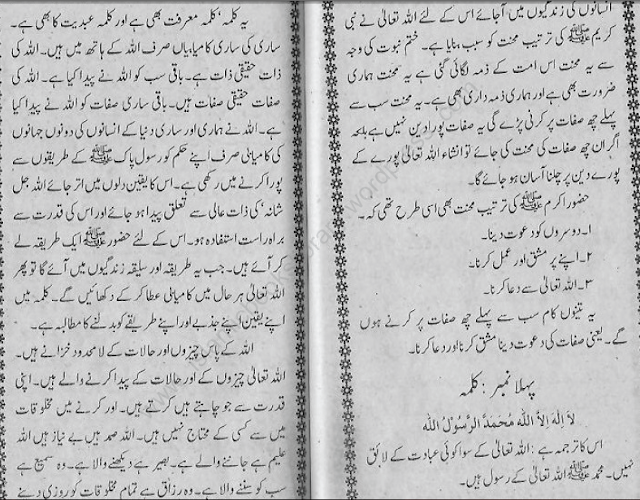 انسانوں کی زندگیوں میں آجائے اس کے لئے اللہ تعالیٰ نے نبی
کریم ﷺ کی ترتیب محنت کو سبب بنایا ہے۔ ختم نبوت کی وجہ
سے یہ محنت اس امت کے ذمہ لگائی گئی ہے یہ محنت ہماری
ضرورت بھی ہے اور ہماری ذمہ داری بھی ہے۔ یہ محنت سب سے
پہلے چھ صفات پر کرنی پڑے گی یہ صفات پورا دین نہیں ہے بلکہ
اگر ان چھ صفات کی محنت کی جائے تو انشاء اللہ تعالیٰ پورے کے
پورے دین پر چلنا آسان ہو جائے گا۔
حضور اکرم ﷺ کی ترتیب محنت بھی اسی طرح تھی کہ۔
۱۔ دوسروں کو دعوت دینا۔
۲۔ اپنے پر مشق اور عمل کرنا۔
۳۔ اللہ تعالیٰ سے دعا کرنا۔
یہ تینوں کام سب سے پہلے چھ صفات پر کرنے ہوں
گے۔ یعنی صفات کی دعوت دینا مشق کرنا اور دعا کرنا۔
پہلا نمبر : کلمہ
لا اله الا الله محمد الرسول الله
اس کا ترجمہ ہے : اللہ تعالیٰ کے سوا کوئی عبادت کے لائق
نہیں۔ محمد ﷺ اللہ تعالیٰ کے رسول ہیں۔
یہ کلمہ، کلمہ معرفت بھی ہے اور کلمہ عبدیت بھی ہے۔
ساری کی ساری کامیابیاں صرف اللہ کے ہاتھ میں ہیں۔ اللہ کی
ذات حقیقی ذات ہے۔ باقی سب کو اللہ نے پیدا کیا ہے۔ اللہ کی
صفات حقیقی صفات ہیں۔ باقی ساری صفات کو اللہ نے پیدا کیا
ہے۔ اللہ نے ہماری اور ساری دنیا کے انسانوں کی دونوں جہانوں
کی کامیابی صرف اپنے حکم کو رسول پاک ﷺ کے طریقوں سے
پورا کرنے میں رکھی ہے۔ اس کا یقین دلوں میں اتر جائے اللہ جل
شانہ، کی ذات عالی سے تعلق پیدا ہو جائے اور اس کی قدرت سے
براہ راست استفادہ ہو۔ اس کے لئے حضور ﷺ ایک طریقہ لے
کر آئے ہیں۔ جب یہ طریقہ اور سلیقہ زندگیوں میں آئے گا تو پھر
اللہ تعالیٰ ہر حال میں کامیابی عطا کر کے دکھائیں گے۔ کلمہ میں
اپنے یقین اپنے جذبے اور اپنے طریقے کو بدلنے کا مطالبہ ہے۔
اللہ کے پاس چیزوں اور حالات کے لا محدود خزانے ہیں۔
اللہ تعالیٰ چیزوں کے اور حالات کے پیدا کرنے والے ہیں۔ اپنی
قدرت سے جو چاہتے ہیں کرتے ہیں۔ اور کرنے میں مخلوقات
میں سے کسی کے محتاج نہیں ہیں۔ اللہ صمد ہیں بے نیاز ہیں اللہ
علیم ہے جاننے والے ہے۔ بصیر ہے دیکھنے والا ہے۔ وہ سمیع ہے
سب کو سننے والا ہے۔ وہ رزاق ہے تمام مخلوقات کو روزی دینے